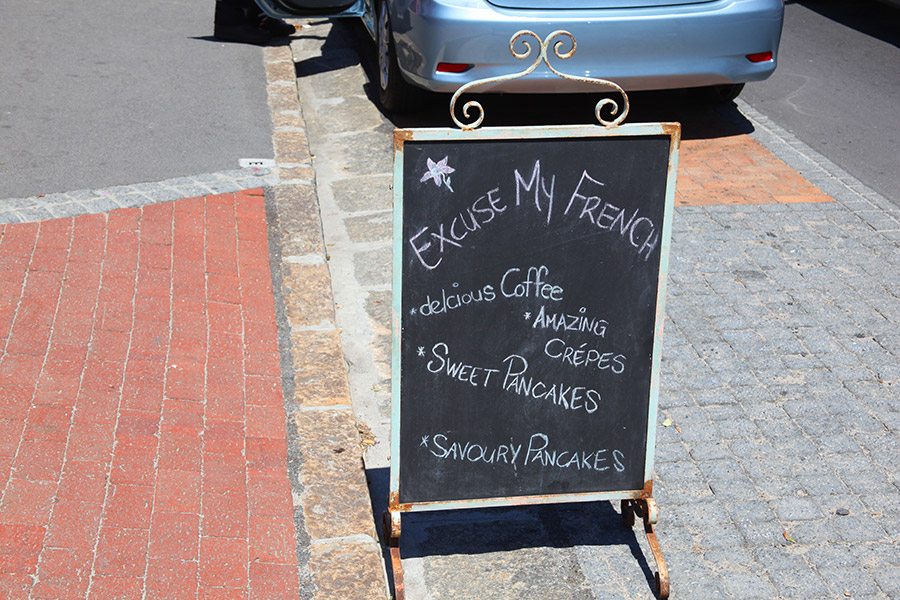 Excuse My French
*delcious Coffee
*Amazing
Crépes
*Sweet Pancakes
*Savoury Pancakes